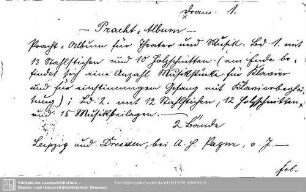 Dram. 1.
- Pracht-Album -
Pracht-Album für Theater und Musik. Bd. 1. mit
13 Stahlstichen und 10 Holzschnitten (am Ende be-
findet sich eine Anzahl Musikstücke für Klavier
und für einstimmigen Gesang mit Klavierbeglei-
tung); Bd. 2. mit 12 Stahlstichen, 12 Holzschnitten,
und 15 Musikbeilagen.
2 Bände
Leipzig und Dresden, bei A. H. Payne, o. J. -
fol.
Sächsische Landesbibliothek -
Staats- und Universitätsbibliothek Dresden